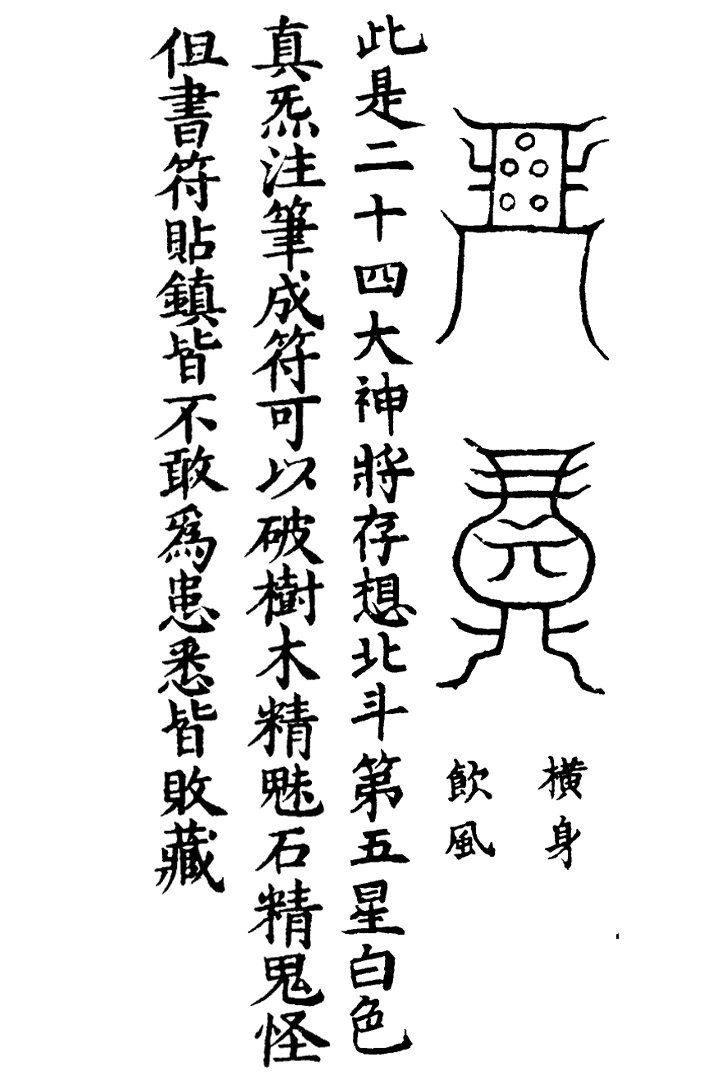 橫身
飲風
此是二十四大神將存想北斗第五星白色
真炁注筆成符可以破樹木精魅石精鬼怪
但書符貼鎮皆不敢為患悉皆敗藏